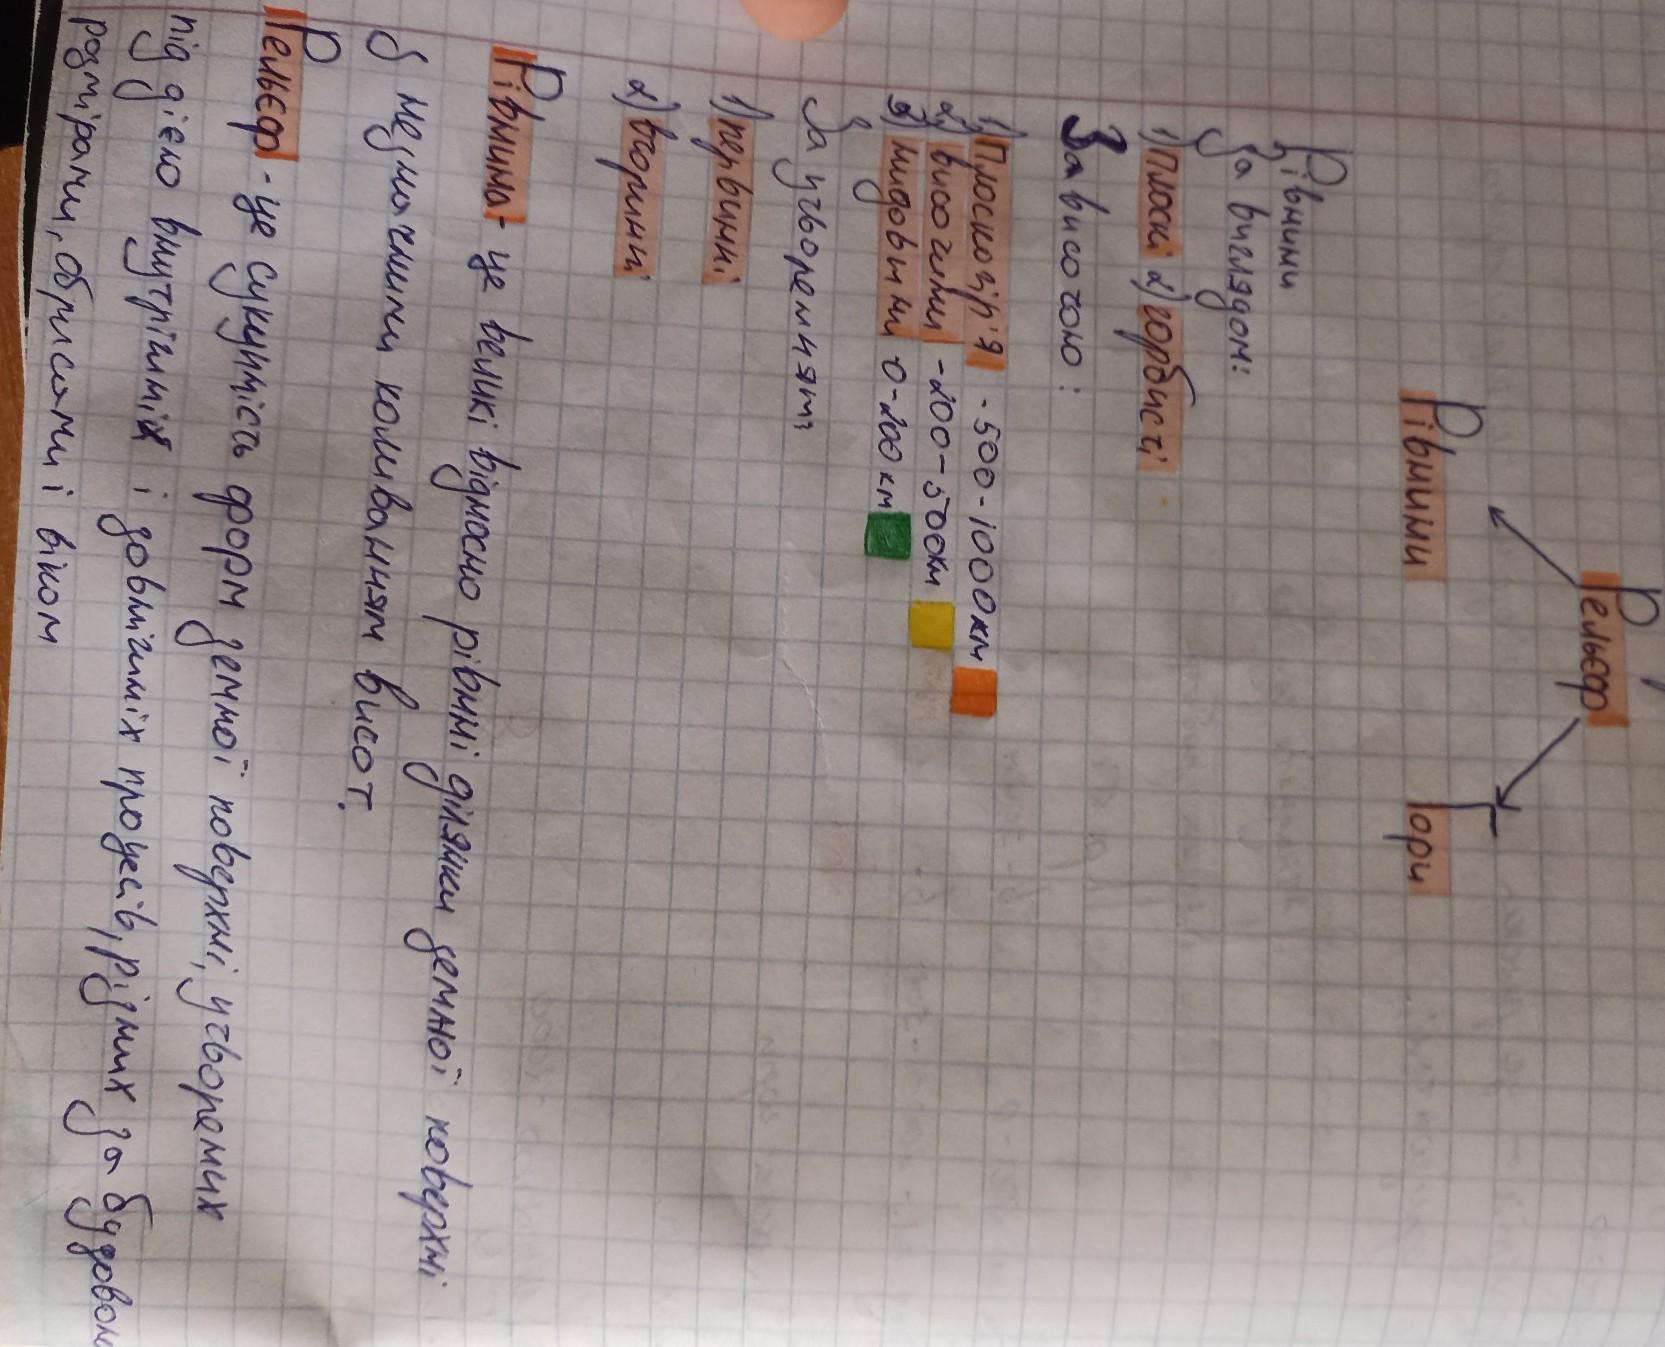 Рельєф
Рівнини Гори
Рівнини
За виглядом:
1) Плоскі 2) горбисті
За висотою:
1) Плоскогір'я - 500-1000км
2) височини - 200-500км
3) низовини 0-200км
За утворенням
1) первинні
2) вторинні
Рівнина - це великі відносно рівнні ділянки земної поверхні
з незначним коливанням висот.
Рельєф - це сукупність форм земної поверхні, утворених
під дією внутрішніх і зовнішніх процесів, різних за будовою
розмірами, обрисами і віком